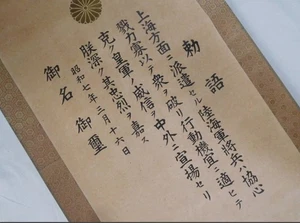 勅語
上海方面ニ派遣セル陸海軍将兵ハ協心
毅力寡以テ衆ヲ破リ行動機宜ニ適ヒテ
克ク皇軍ノ威信ヲ中外ニ宣揚セリ
朕深ク其忠烈ヲ嘉ス
昭和七年三月十六日
御名 御璽